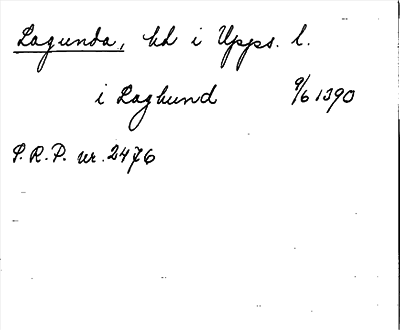 Lagunda, hd i Upps. l.
i Laghund 9/6 1390
S.R.P. nr. 2476